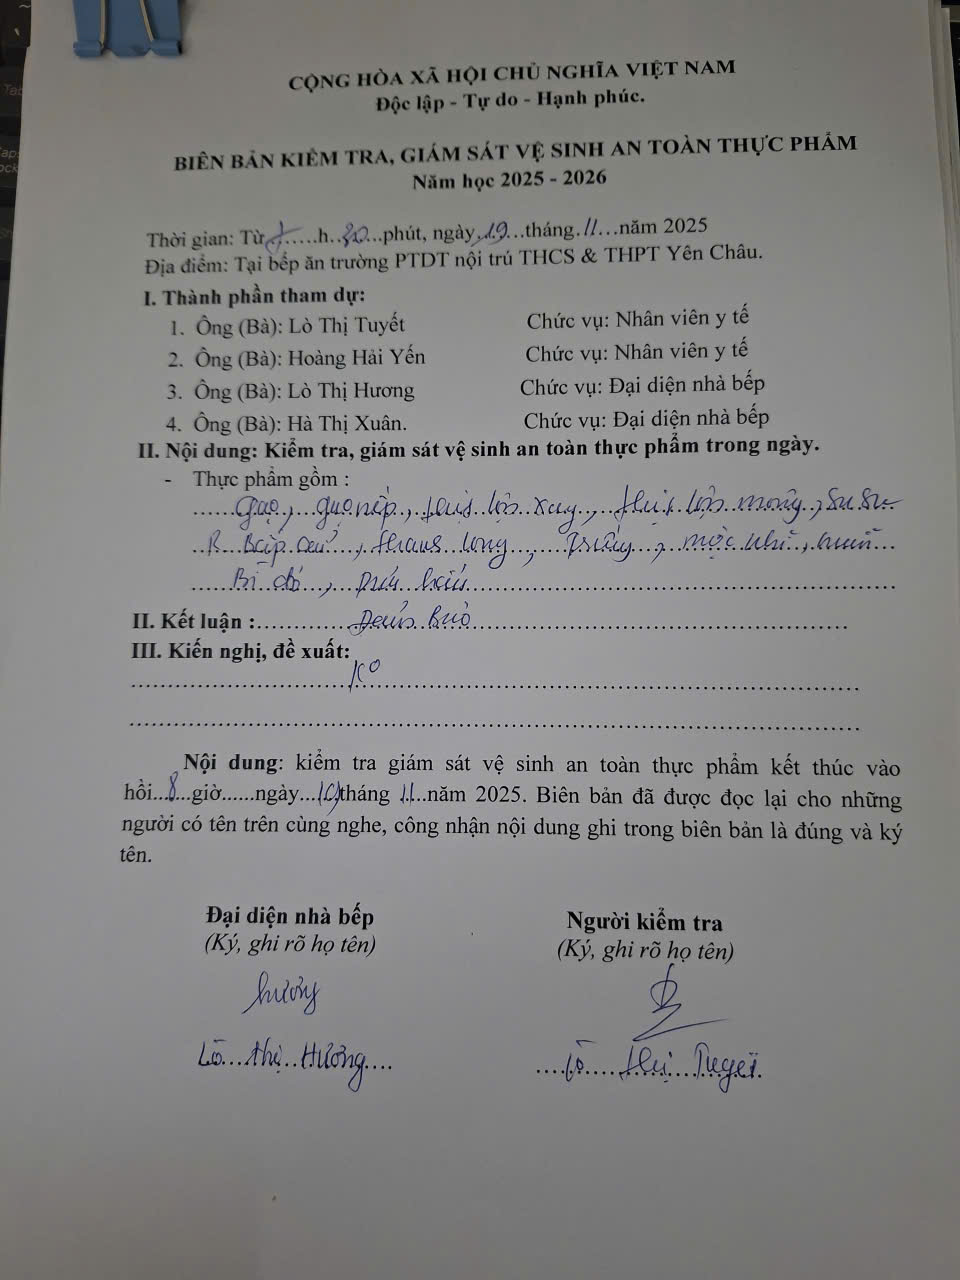 CỘNG HÒA XÃ HỘI CHỦ NGHĨA VIỆT NAM
Độc lập - Tự do - Hạnh phúc.
BIÊN BẢN KIỂM TRA, GIÁM SÁT VỆ SINH AN TOÀN THỰC PHẨM
Năm học 2025 - 2026
Thời gian: Từ 7......h..30...phút, ngày..19...tháng..11...năm 2025
Địa điểm: Tại bếp ăn trường PTDT nội trú THCS & THPT Yên Châu.
I. Thành phần tham dự:
1. Ông (Bà): Lò Thị Tuyết Chức vụ: Nhân viên y tế
2. Ông (Bà): Hoàng Hải Yến Chức vụ: Nhân viên y tế
3. Ông (Bà): Lò Thị Hương Chức vụ: Đại diện nhà bếp
4. Ông (Bà): Hà Thị Xuân. Chức vụ: Đại diện nhà bếp
II. Nội dung: Kiểm tra, giám sát vệ sinh an toàn thực phẩm trong ngày.
- Thực phẩm gồm :
Gạo, gạo nếp, thịt lợn xay, thịt lợn mông, su su
R. Bắp cải, thanh long, trứng, mộc nhĩ,
Bí đỏ,
II. Kết luận : Đảm Bảo
III. Kiến nghị, đề xuất:
K0
Nội dung: kiểm tra giám sát vệ sinh an toàn thực phẩm kết thúc vào
hồi...8...giờ......ngày...19 tháng 11...năm 2025. Biên bản đã được đọc lại cho những
người có tên trên cùng nghe, công nhận nội dung ghi trong biên bản là đúng và ký
tên.
Đại diện nhà bếp Người kiểm tra
(Ký, ghi rõ họ tên) (Ký, ghi rõ họ tên)
Hương
Lò Thị Hương Lò Thị Tuyết